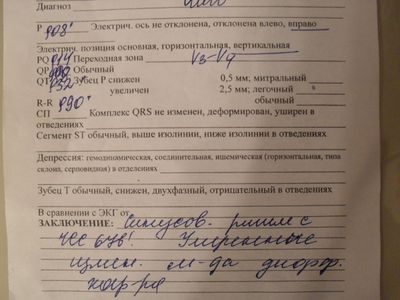 Диагноз
P 0,08" Электрич. ось не отклонена, отклонена влево, вправо
Электрич. позиция основная, горизонтальная, вертикальная
PQ 0,14 Переходная зона V3-V4
QP Обычный
QT 0,32" Зубец P снижен 0,5 мм; митральный
увеличен 2,5 мм; легочный
R-R 0,90" обычный
СП Комплекс QRS не изменен, деформирован, уширен в
отведениях
Сегмент ST обычный, выше изолинии, ниже изолинии в отведениях
Депрессия: гемодинамическая, соединительная, ишемическая (горизонтальная, типа
склона, серповидная) в отделениях
Зубец T обычный, снижен, двухфазный, отрицательный в отведениях
В сравнении с ЭКГ от
ЗАКЛЮЧЕНИЕ: Синусов. ритм с
ЧСС 67 в 1'. Умеренные
измен. м-да диффф.
хар-ра